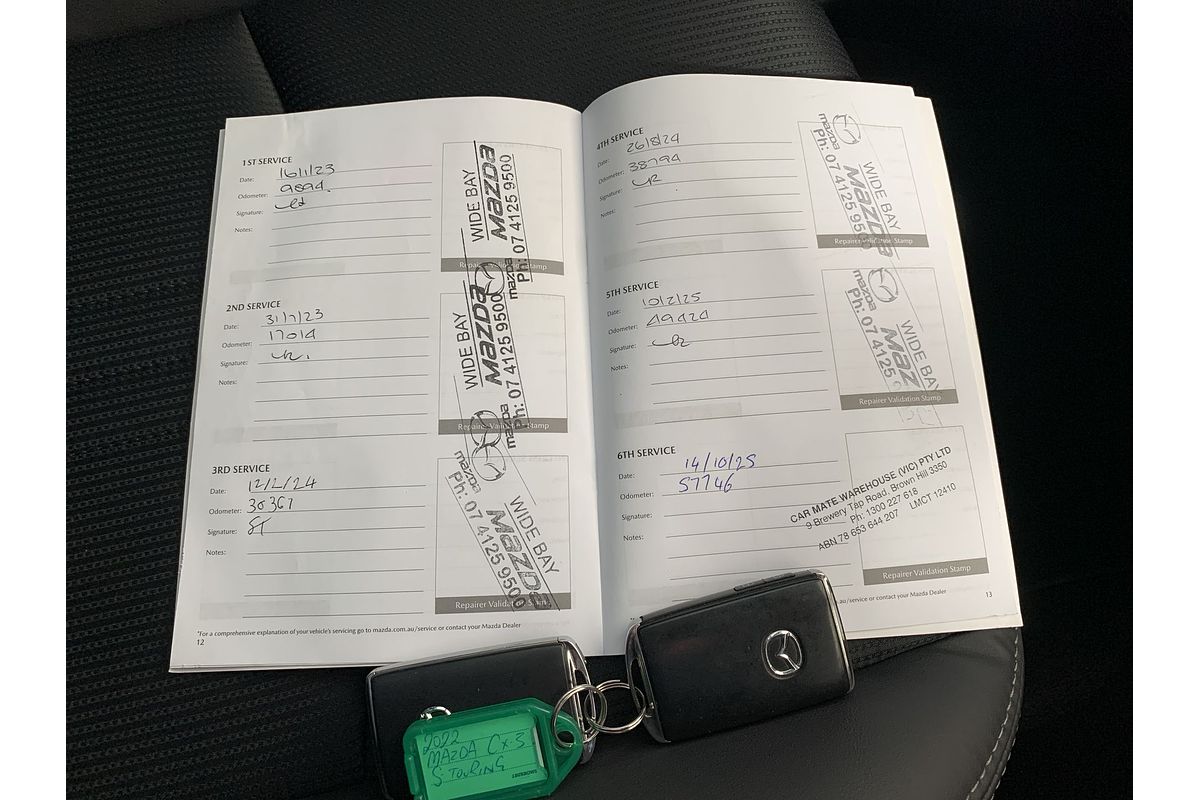 1ST SERVICE
Date: 16/1/23
Odometer: 9894.
Signature:
Notes:
WIDE BAY
mazda
Ph: 07 4125 9500
Repairer Validation Stamp
2ND SERVICE
Date: 31/7/23
Odometer: 17014
Signature:
Notes:
WIDE BAY
mazda
mazda
Ph: 07 4125 9500
Repairer Validation Stamp
3RD SERVICE
Date: 12/2/24
Odometer: 30367
Signature:
Notes:
WIDE BAY
mazda
mazda
Ph: 07 4125 9500
Repairer Validation Stamp
*For a comprehensive explanation of your vehicle's servicing go to mazda.com.au/service or contact your Mazda Dealer
12
4TH SERVICE
Date: 26/8/24
Odometer: 38794
Signature:
Notes:
WIDE BAY
mazda
mazda
Ph: 07 4125 950
Repairer Validation Stamp
5TH SERVICE
Date: 10/2/25
Odometer: 49424
Signature:
Notes:
WIDE BAY
mazda
Maz
Ph: 07 4125
Repairer Validation Stamp
6TH SERVICE
Date: 14/10/25
Odometer: 57746
Signature:
Notes:
CAR MATE WAREHOUSE (VIC) PTY LTD
9 Brewery Tap Road, Brown Hill 3350
Ph: 1300 227 618
ABN 78 653 644 207 LMCT 12410
Repairer Validation Stamp
.au/service or contact your Mazda Dealer
13
2022
MAZDA CX-3
S. TOURING